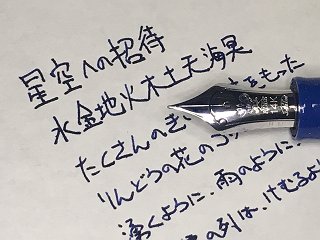 星空への招待
水金地火木土天海冥
たくさんのき をもった
りんどうの花のコッ
湧くように、雨のように、
の列は、けむるよ
14K